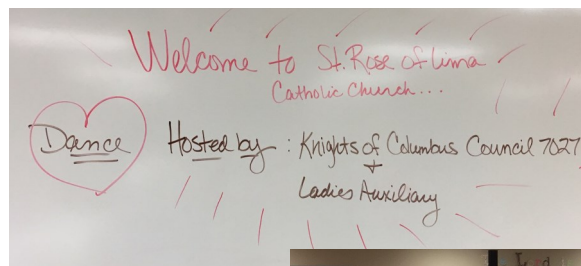 Welcome to St. Rose of Lima
Catholic Church...
Dance Hosted by : Knights of Columbus Council 7027
+
Ladies Auxiliary